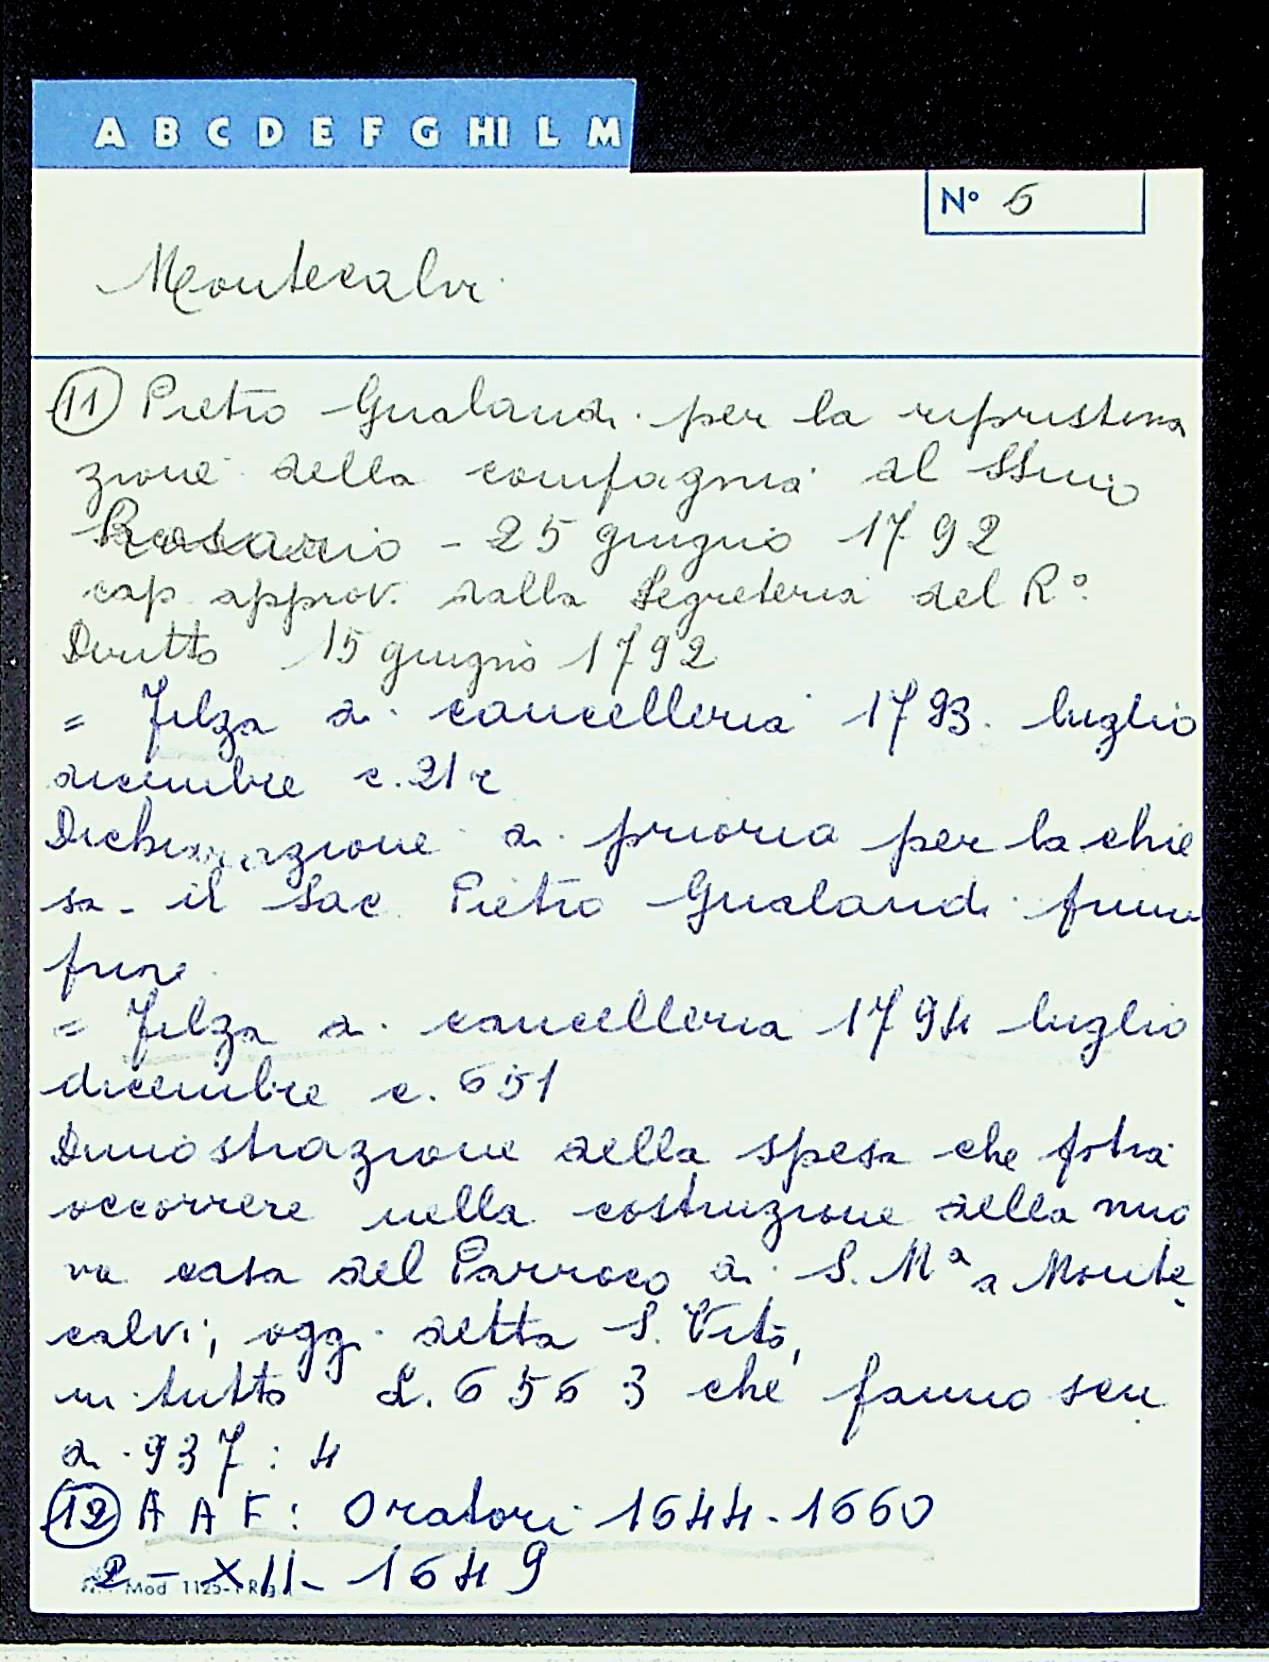 A B C D E F G HI L M
Nº 6
Montecalvi
(11) Pietro Gualandi per la ripristina
zione della compagnia del SSmo
Rosario - 25 giugno 1792
cap. approv. dalla Segreteria del Rº
Diritto 15 giugno 1792
= Filza di cancelleria 1793 luglio
dicembre c. 21r
Dichiarazione di prioria per la chie
sa - il Sac. Pietro Gualandi
= Filza di cancelleria 1794 luglio
dicembre c. 651
Dimostrazione della spesa che potrà
occorrere nella costruzione della nuo
va casa del Parroco di S. Mª a Monte
calvi, oggi detta S. Vito,
in tutto L. 6563 che fanno scu
di 937 : 4
(12) A A F : Oratori 1644-1660
2 - XII - 1649
Mod 1125-